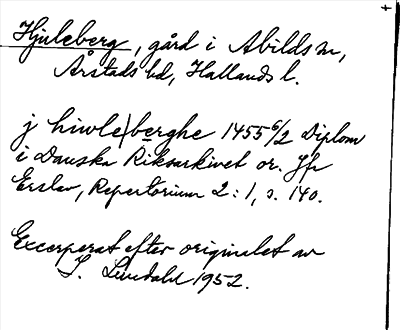 Hjuleberg, gård i Abilds sn,
Årstads hd, Hallands l.
j hiwle|berghe 1455 6/2 Diplom
i Danska Riksarkivet or. Jfr
Erslev, Repertorium 2:1, s. 140.
Excerperat efter originalet av
S. Lindahl 1952.